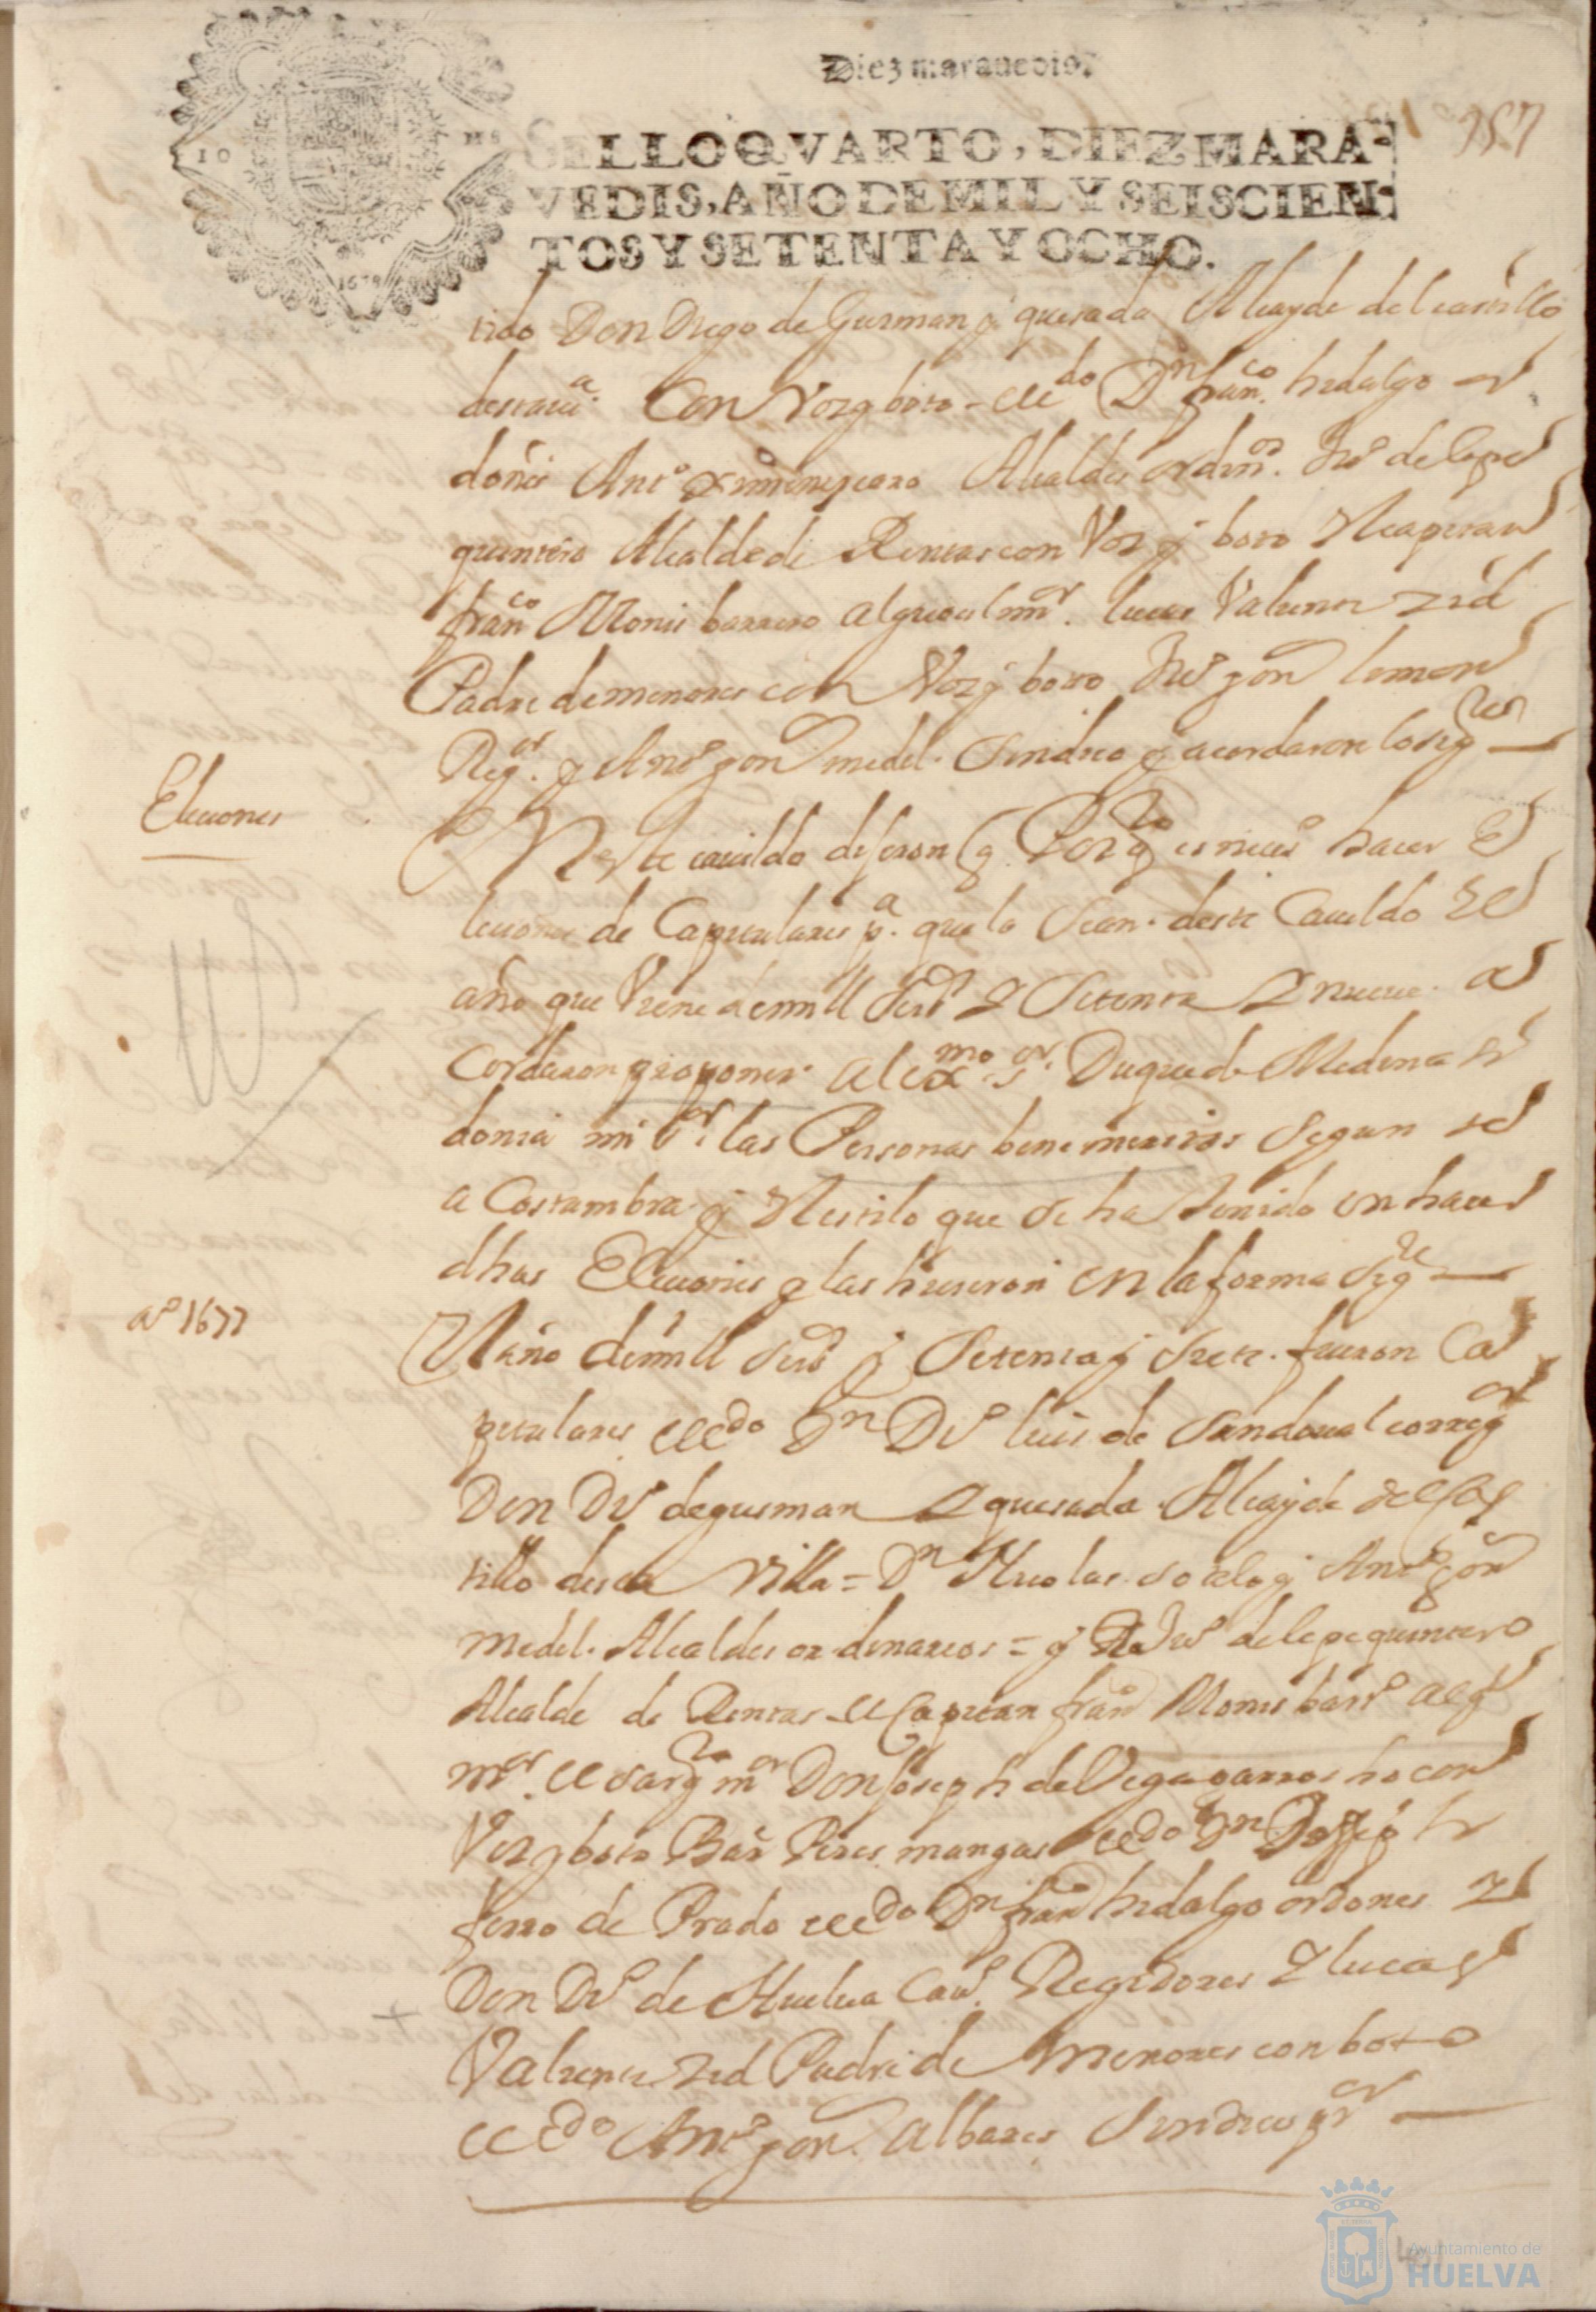 Diez maravedis.
SELLO QVARTO, DIEZ MARA-
VEDIS, AÑO DE MIL Y SEISCIEN-
TOS Y SETENTA Y OCHO.
10 MS
1678
757
tido Don Diego de Gusman y quesada Alcayde del castillo
desta va. Con Voz y boto - ellcdo Dn franco. hidalgo or
doñes Anto Alcaldes ordinos. Juo de lepe
quintero Alcalde de Rentas con Voz y boto El capitan
franco Monis barrero alguasil mor. lucas Valiente zid
Padre de menores con Voz y boto Juo gon lemon
Regor. y Anto gon medel. Sindico y acordaron lo sigtes
Elecciones
En este cavildo dijeron q Por qto es neceso hacer E
lecciones de Capitulares pa. que lo sean. deste Cavildo el
año que Viene de mill seisos y Setenta y nueve. a
cordaron proponer al exmo sor. Duque de Medina si
donia mi sor las Personas benemeritas segun
a Costumbre y Estilo que se ha tenido en hacer
dhas Elecciones y las hisieron en la forma sigte
ao 1677
El año de mill seisos y Setenta y siete. fueron Ca
pitulares ellcdo Dn Do luis de Sandoval corregor
Don Do de gusman y quesada Alcayde del Cas
tillo desta Villa = Dn Nicolas sotelo y Anto gon
medel. Alcaldes ordinarios = y Juo de lepe quintero
Alcalde de Rentas - el Capitan frano Monis barro alg
mor. el sargto mor Don Joseph de Vega garrocho con
Voz y boto Bar Peres mangas ellcdo Dn
fierro de Prado ellcdo Dn frano hidalgo ordones
Don Do de Huelva Cavo. Regidores y lucas
Valiente zid Padre de Menores con boto
ellcdo Anto gon. albares Sindico pror
Ayuntamiento de
HUELVA